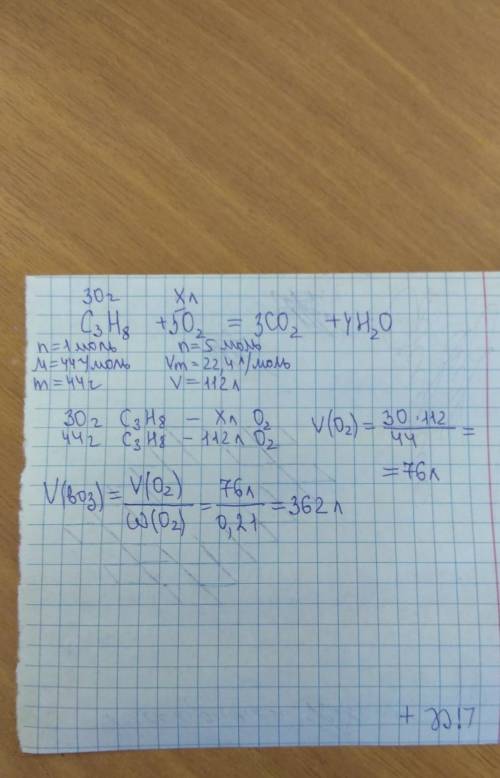 30г Xл
C₃H₈ +5O₂ = 3CO₂ +4H₂O
n=1моль n=5 моль
M=44г/моль Vm=22,4 л/моль
m=44г V=112 л
30г C₃H₈ – Xл O₂ V(O₂) = 30·112/44 =
44г C₃H₈ – 112л O₂
= 76л
V(воз) = V(O₂)/ω(O₂) = 76л/0,21 = 362 л